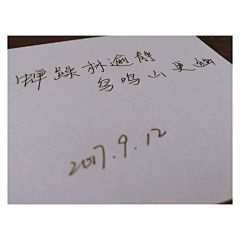 蝉噪林逾静
鸟鸣山更幽
2017.9.12